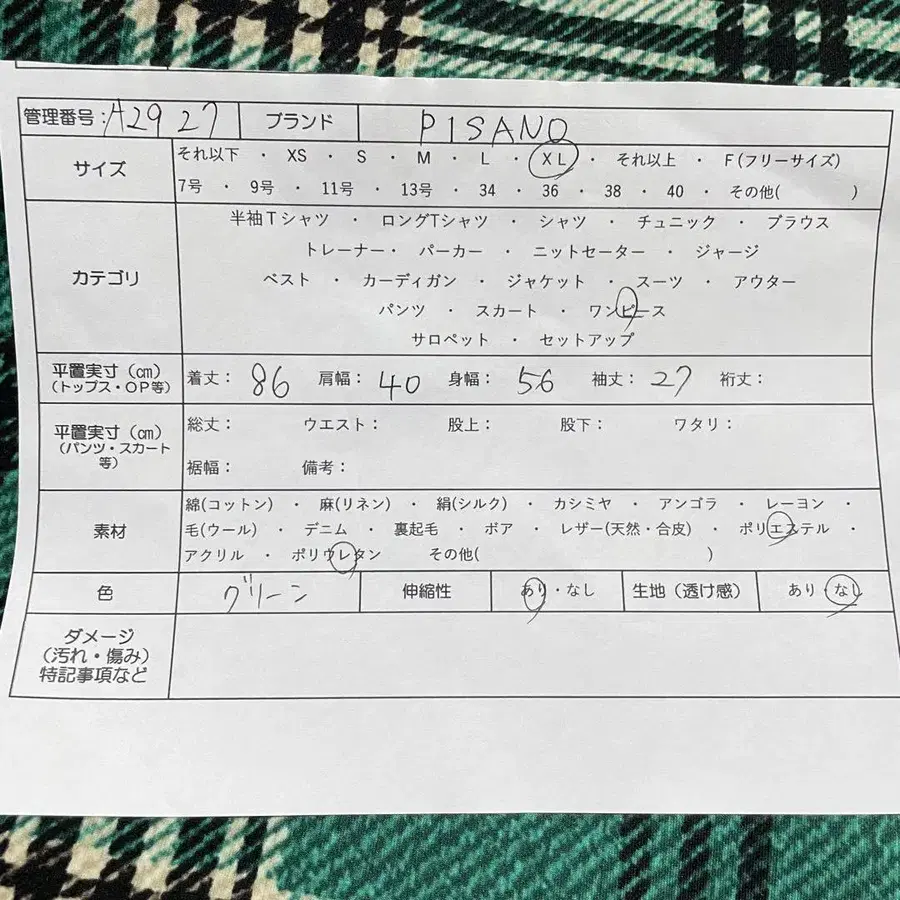 管理番号：A2927 ブランド PISANO
サイズ それ以下 ・ XS ・ S ・ M ・ L ・ XL ・ それ以上 ・ F(フリーサイズ)
7号 ・ 9号 ・ 11号 ・ 13号 ・ 34 ・ 36 ・ 38 ・ 40 ・ その他( )
カテゴリ
半袖Tシャツ ・ ロングTシャツ ・ シャツ ・ チュニック ・ ブラウス
トレーナー・ パーカー ・ ニットセーター ・ ジャージ
ベスト ・ カーディガン ・ ジャケット ・ スーツ ・ アウター
パンツ ・ スカート ・ ワンピース
サロペット ・ セットアップ
平置実寸（㎝）
（トップス・OP等）
着丈： 86 肩幅： 40 身幅： 56 袖丈： 27 裄丈：
平置実寸（㎝）
（パンツ・スカート
等）
総丈： ウエスト： 股上： 股下： ワタリ：
裾幅： 備考：
素材
綿(コットン) ・ 麻(リネン) ・ 絹(シルク) ・ カシミヤ ・ アンゴラ ・ レーヨン ・
毛(ウール) ・ デニム ・ 裏起毛 ・ ボア ・ レザー(天然・合皮) ・ ポリエステル ・
アクリル ・ ポリウレタン その他( )
色 グリーン 伸縮性 あり・なし 生地（透け感） あり・なし
ダメージ
（汚れ・傷み）
特記事項など